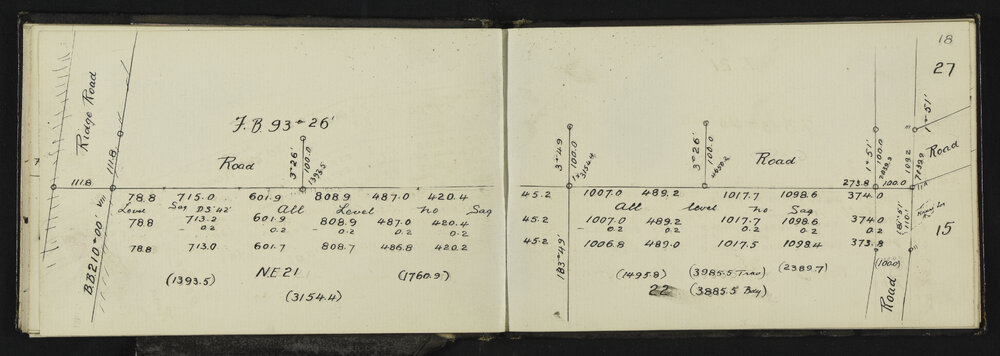 18
27
Ridge Road
F.B. 93° 26'
111.8
111.8
3° 26'
100.0
1393.5
Road
78.8 715.0 601.9 808.9 487.0 420.4
Level Sag D 3° 42' All Level no Sag
78.8 713.2 601.9 808.9 487.0 420.4
0.2 0.2 0.2 0.2 0.2
78.8 713.0 601.7 808.7 486.8 420.2
B.B. 210° 00'
(1393.5)
NE 21
(1760.9)
(3154.4)
3° 49
100.0
3154.4
3° 26'
100.0
Road
° 51'
100.0
109.2
° 51'
Road
273.8 100.0
45.2 1007.0 489.2 1017.7 1098.6 374.0
All level no Sag
45.2 1007.0 489.2 1017.7 1098.6 374.0
0.2 0.2 0.2 0.2 0.2
45.2 1006.8 489.0 1017.5 1098.4 373.8
183° 49'
181° 51'
110.1
15
(1495.8) (3985.5 Trav) (2389.7)
(100.0)
22 (3885.5 Bdy)
Road